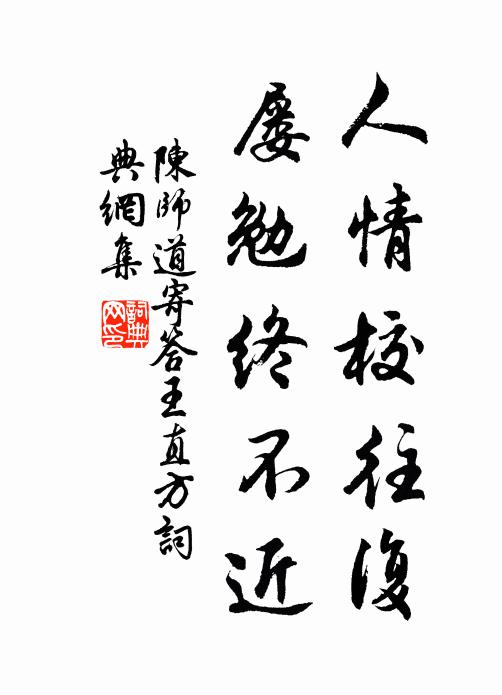 人情校往復
屡勉終不近
陳師道寄答王直方詞
典網集
詞典网印